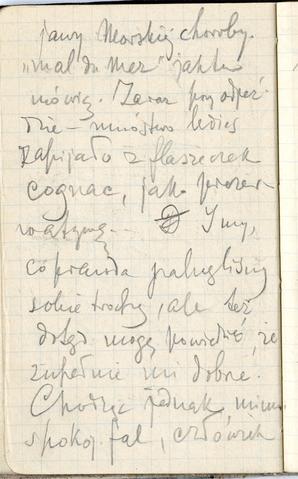 jawy Morskiej choroby.
"mal du mer" jak tu
mówią. Zaraz przy odjeź-
dzie – mnóstwo ledies
zapijało z flaszeczek
cognac, jako prezer-
watywę. I my,
co prawda
sobie trochę, ale też
dotąd mogę powiedzieć, że
zupełnie mi dobrze.
Chodząc jednak, mimo
spokoj. fal, człowiek